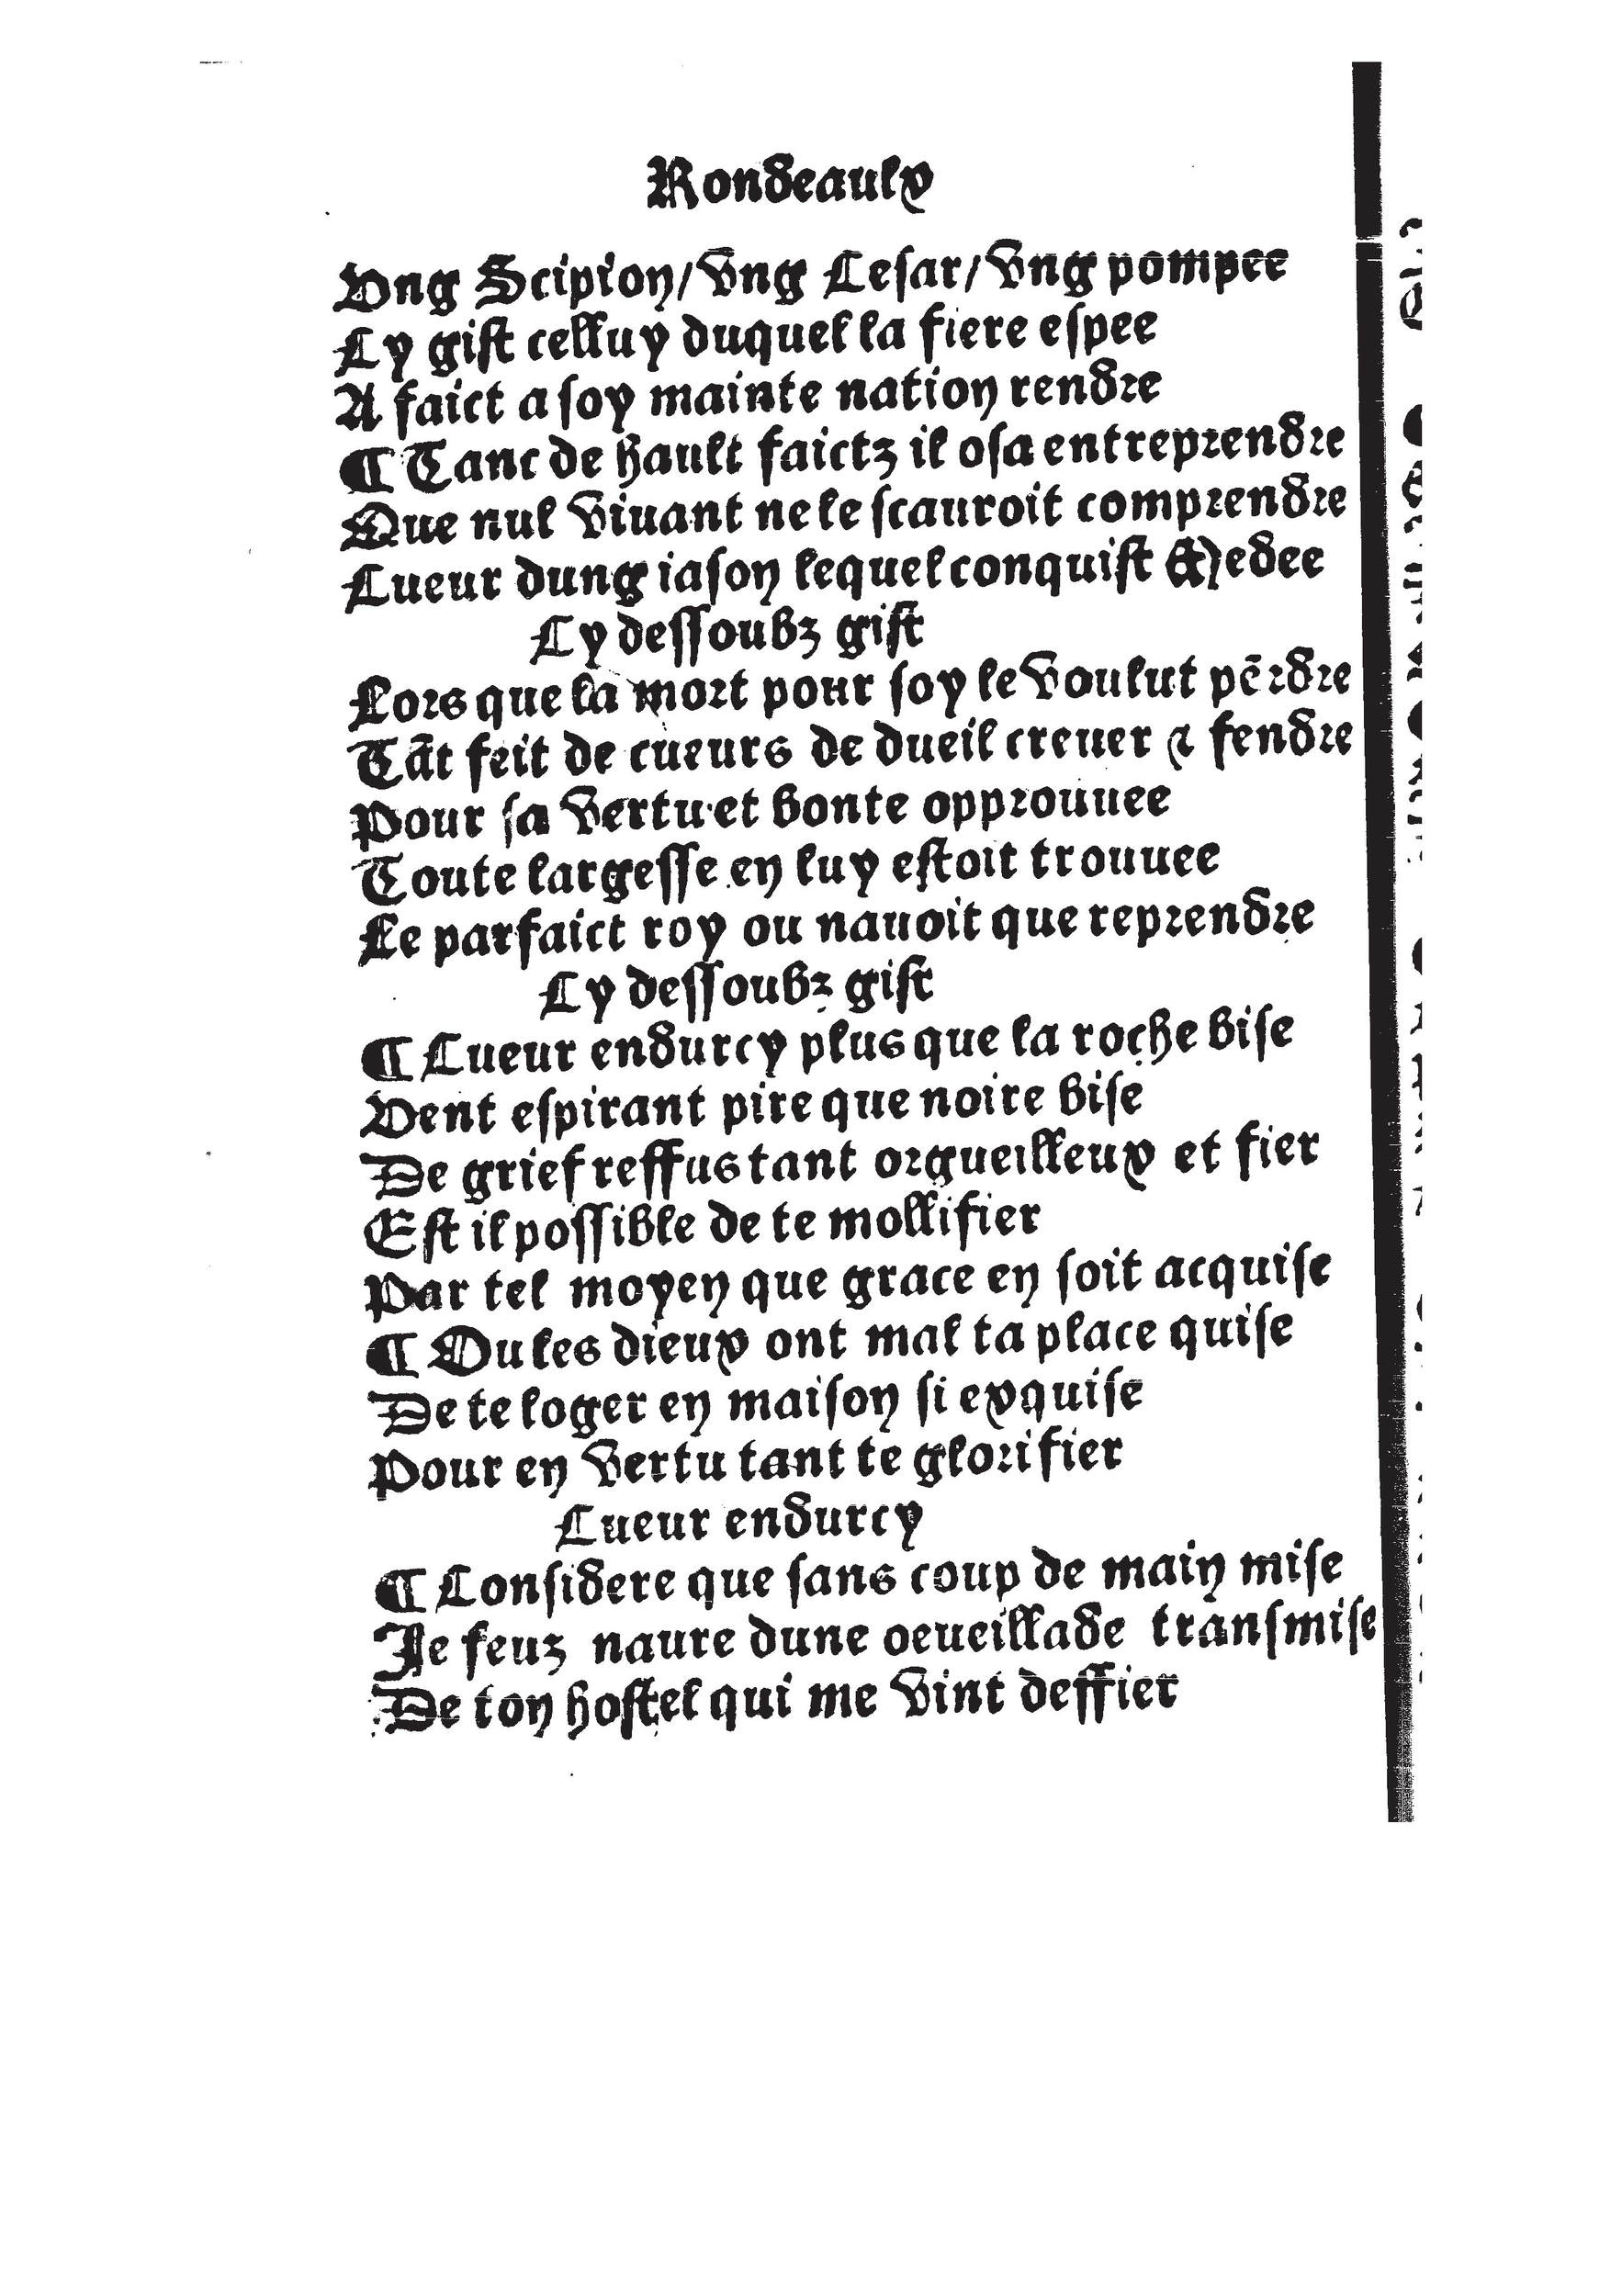 Rondeaulx
Ung Scipion/ung Cesar/ung pompee
Cy gist celluy duquel la fiere espee
A faict a soy mainte nation rendre
¶ Tant de hault faictz il osa entreprendre
Que nul vivant ne le scauroit comprendre
Cueur dung iason lequel conquist Medee
Cy dessoubz gist
Lors que la mort pour soy le voulut pẽrdre
Tãt feit de cueurs de dueil crever & fendre
Pour sa vertu et bonte opprouuee
Toute largesse en luy estoit trouuee
Le parfaict roy ou nauoit que reprendre
Cy dessoubz gist
¶ Cueur endurcy plus que la roche bise
Vent espirant pire que noire bise
De grief reffus tant orgueilleux et fier
Est il possible de te mollifier
Par tel moyen que grace en soit acquise
¶ Ou les dieux ont mal ta place quise
De te loger en maison si exquise
Pour en vertu tant te glorifier
Cueur endurcy
¶ Considere que sans coup de main mise
Je feuz naure dune oeueillade transmise
De ton hostel qui me vint deffier